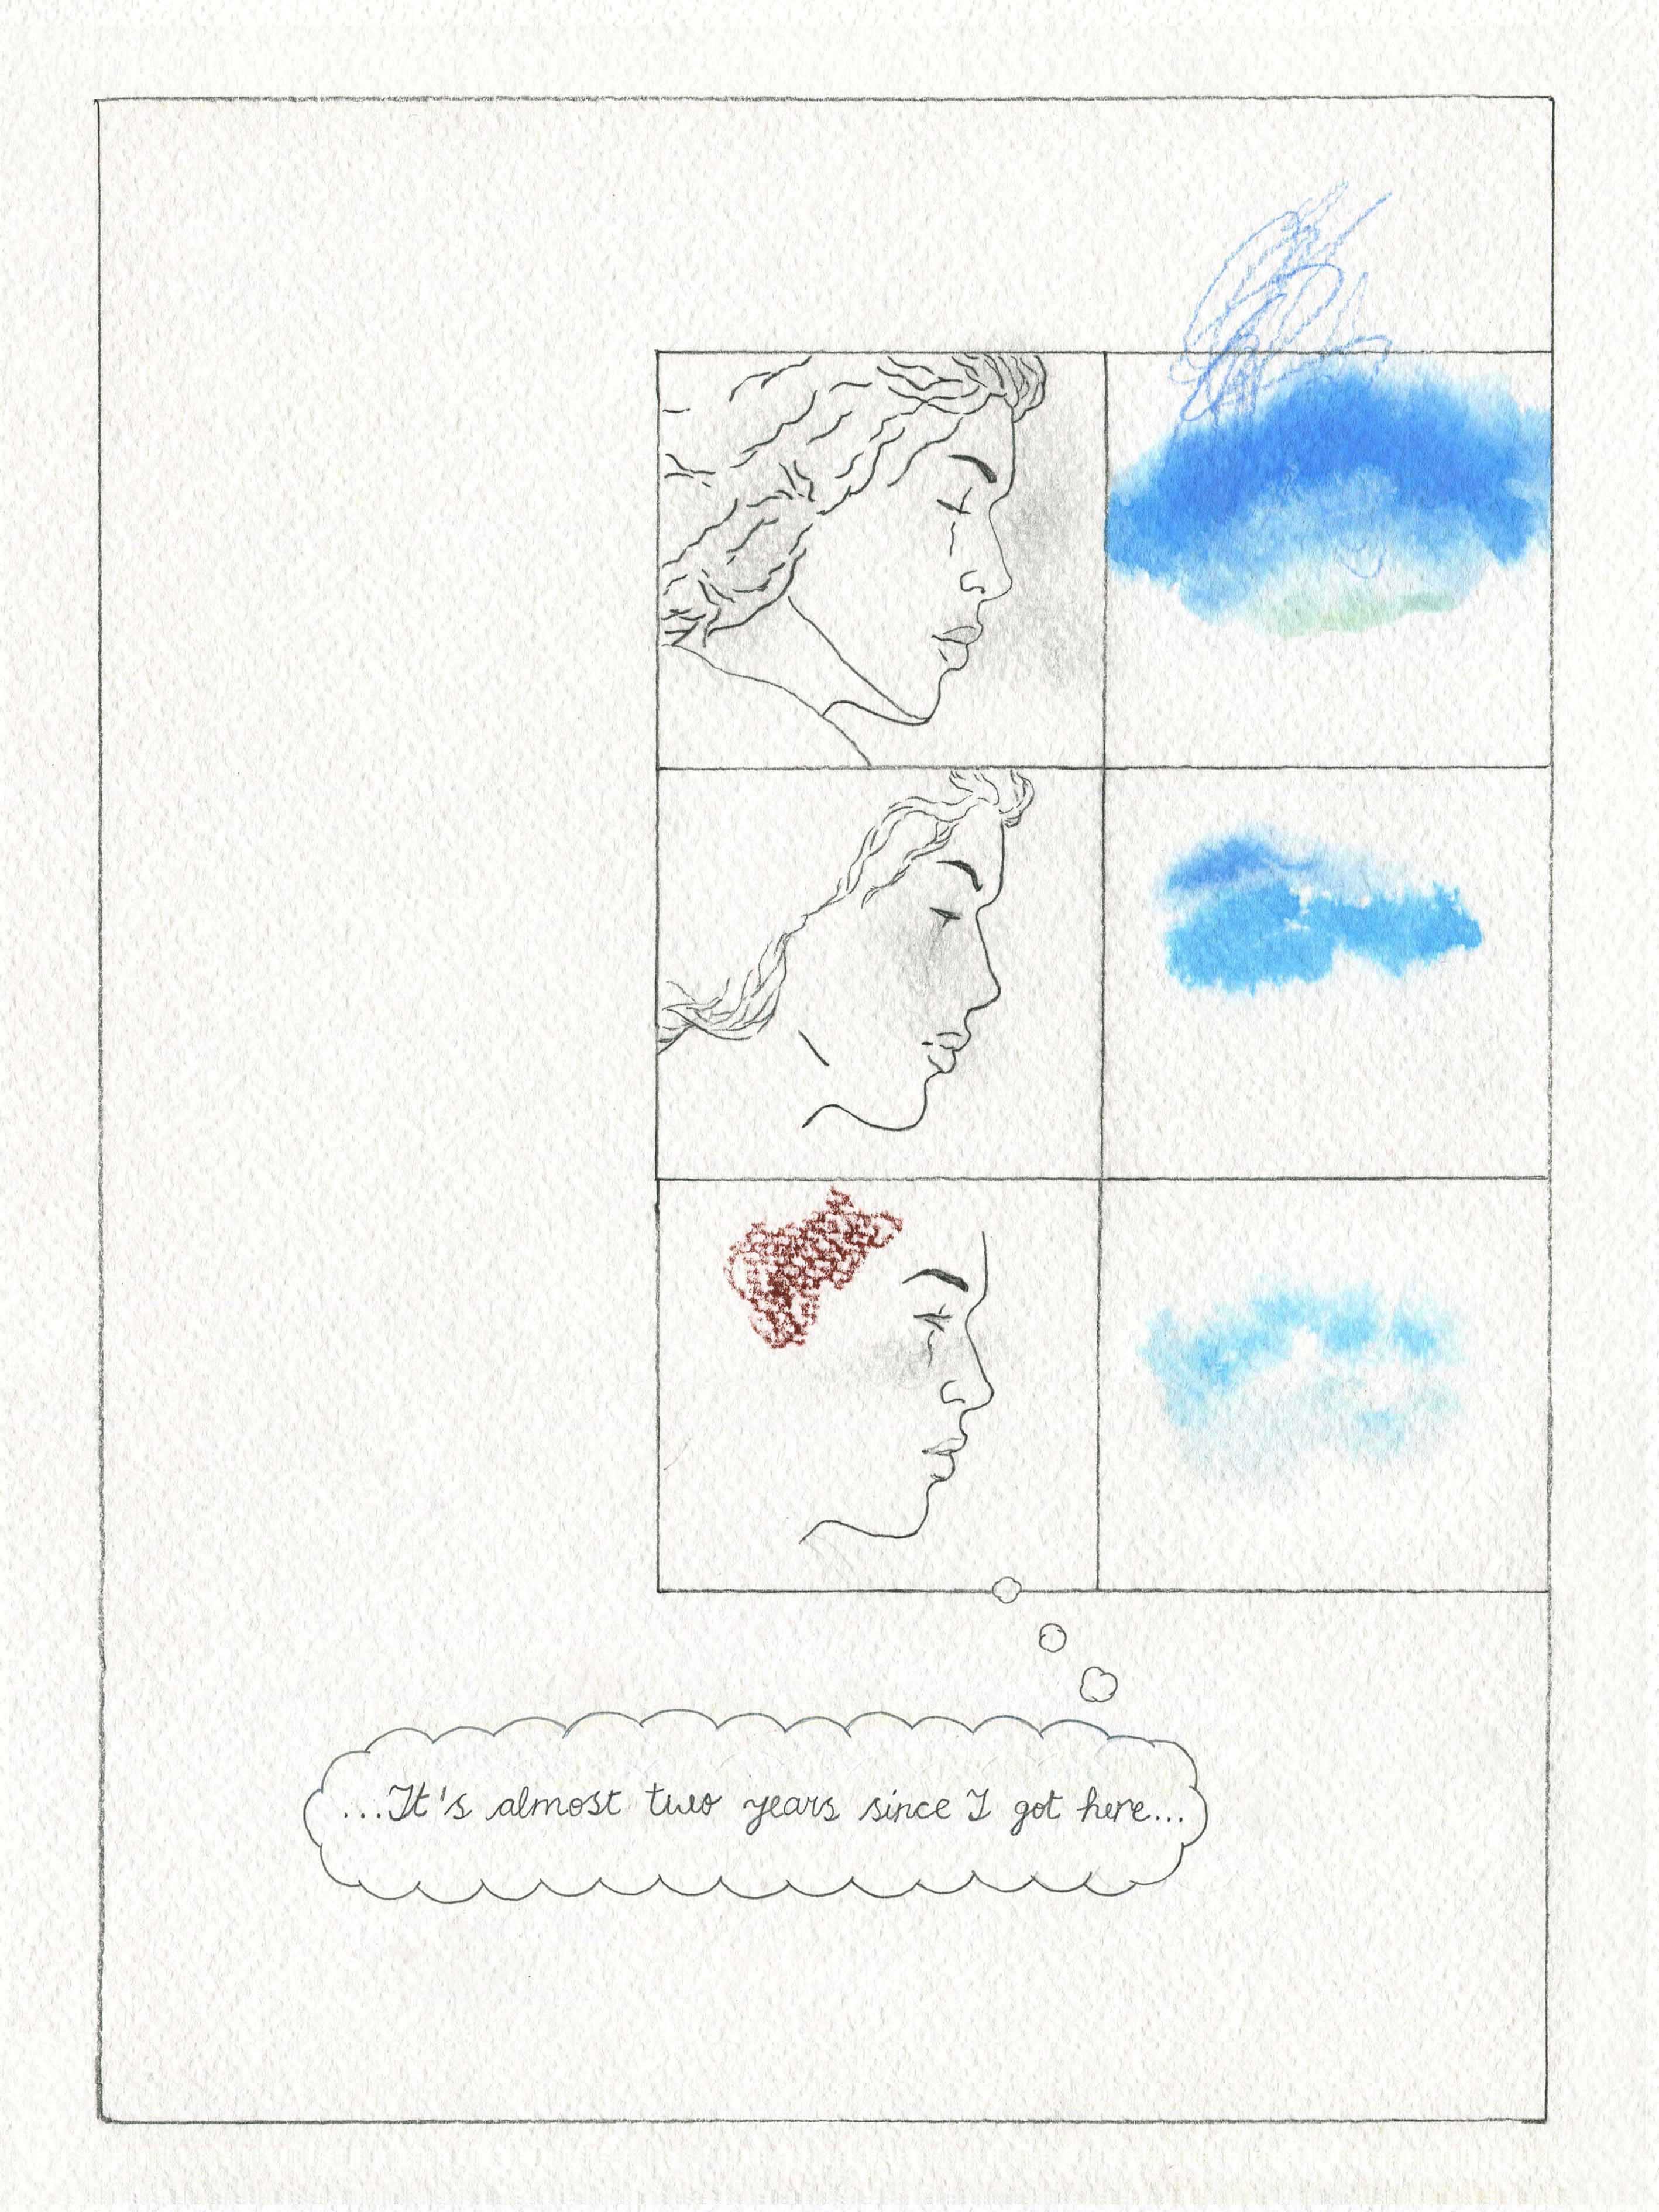 ...It's almost two years since I got here...